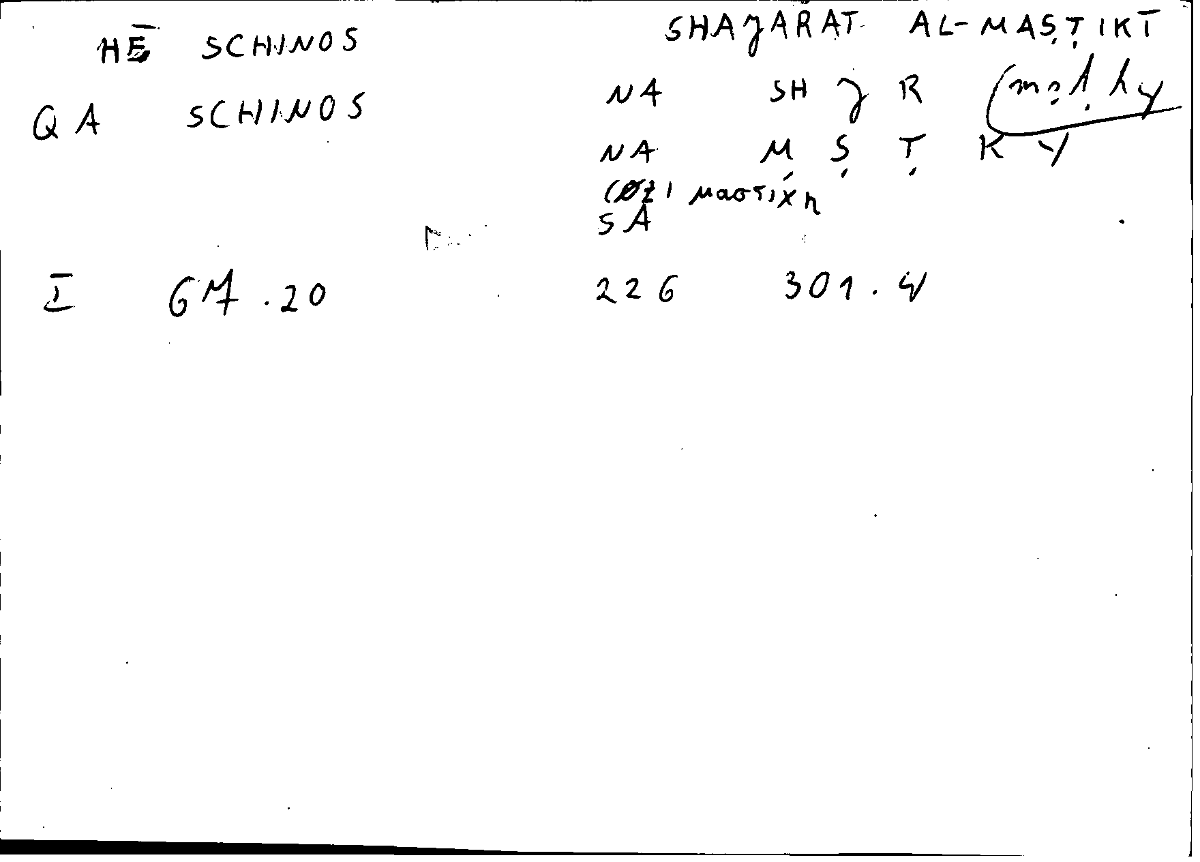 HĒ SCHINOS SHAJARAT AL-MAṢṬIKĪ
QA SCHINOS NA SH J R (mṣṭky
NA M Ṣ Ṭ K Y
μαστίχη
SA
I 67.20 226 301.4